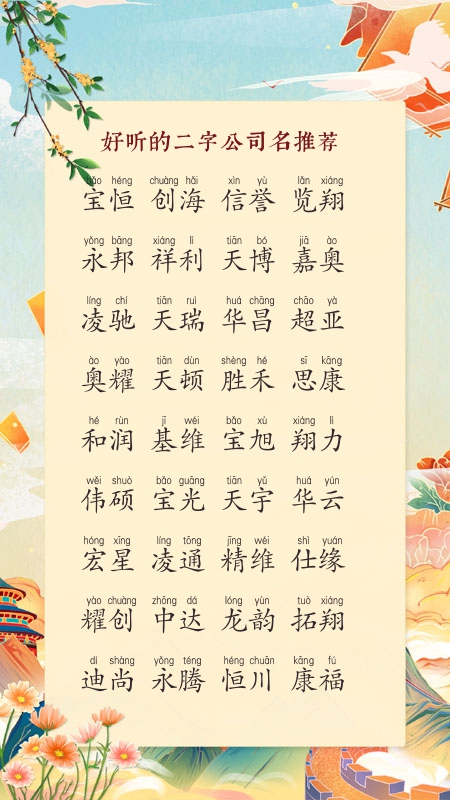 好听的二字公司名推荐
bǎo héng chuàng hǎi xìn yù lǎn xiáng
宝恒 创海 信誉 览翔
yǒng bāng xiáng lì tiān bó jiā ào
永邦 祥利 天博 嘉奥
líng chí tiān ruì huá chāng chāo yà
凌驰 天瑞 华昌 超亚
ào yào tiān dùn shèng hé sī kāng
奥耀 天顿 胜禾 思康
hé rùn jī wéi bǎo xù xiáng lì
和润 基维 宝旭 翔力
wěi shuò bǎo guāng tiān yǔ huá yún
伟硕 宝光 天宇 华云
hóng xīng líng tōng jīng wéi shì yuán
宏星 凌通 精维 仕缘
yào chuàng zhōng dá lóng yùn tuò xiáng
耀创 中达 龙韵 拓翔
dí shàng yǒng téng héng chuān kāng fú
迪尚 永腾 恒川 康福